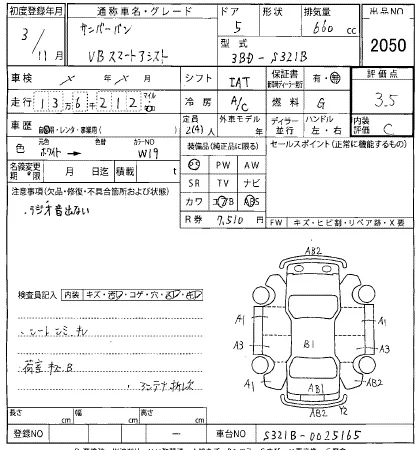 初度登録年月 通称車名・グレード ドア 形状 排気量 出品NO
サンバーバン 5 660 cc
3/11月 VBスマートアシスト 型式 3BD - S321B 2050
車検 / × / × シフト IAT 保証書 有・無 評価点
走行 13万6千212 マイル 冷房 A/C 燃料 G 3.5
車歴 自家用・レンタ・事業用( ) 定員 2(4)人 外車モデル 年 ディラー 並行 ハンドル 左・右 内装評価 C
色 元色 ホワイト→ 色替 カラーNO W19 装備品(純正品に限る) セールスポイント(正常に機能するもの)
名義変更期限 月 日迄 積載 t PS PW AW
注意事項(欠品・修復・不具合箇所および状態) SR TV ナビ
ラジオ音出ない カワ エアB ABS
R券 7,510円 FW キズ・ヒビ割・リペア跡・X要
検査員記入 内装 キズ・汚れ・コゲ・穴
AB2
A1 A1
シートシミ キレ
A3 B1 A3
荷室キズB
A1 AB1 AB2
アンテナ折れ
Y2
長さ cm 幅 cm 高さ cm
登録NO ー 車台NO S321B-0025165